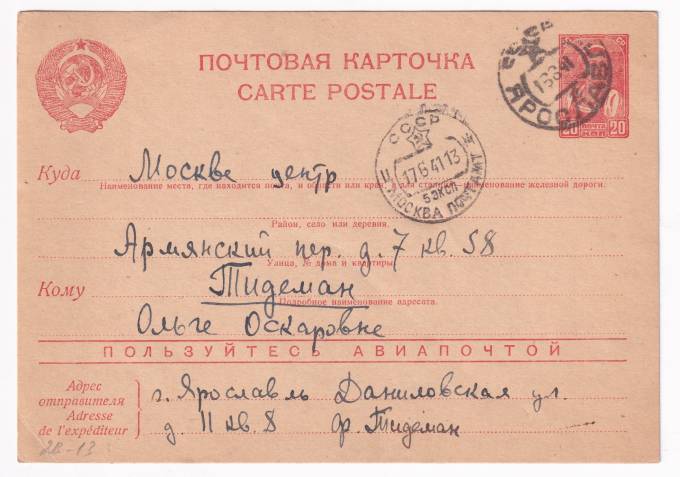 ПОЧТОВАЯ КАРТОЧКА
CARTE POSTALE
20 ПОЧТА 20
СССР
17 6 41 13
5 ЭКСП
МОСКВА ПОЧТАМТ
ЯРОС
Куда Москва центр
Наименование места, где находится почта, и области или края, а для станции наименование железной дороги.
Район, село или деревня.
Армянский пер. д. 7 кв. 58
Улица, № дома и квартиры
Кому Тидеман
Подробное наименование адресата.
Ольге Оскаровне
ПОЛЬЗУЙТЕСЬ АВИАПОЧТОЙ
Адрес
отправителя
Adresse
de l'expéditeur
г. Ярославль Даниловская ул.
д. 11 кв. 8 ф. Тидеман
28-13